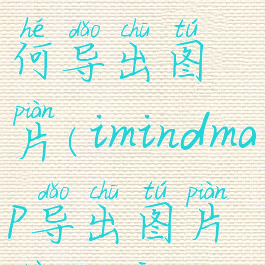 hé dǎo chū tú
何导出图
piàn
片(imindma
dǎo chū tú piàn
p导出图片